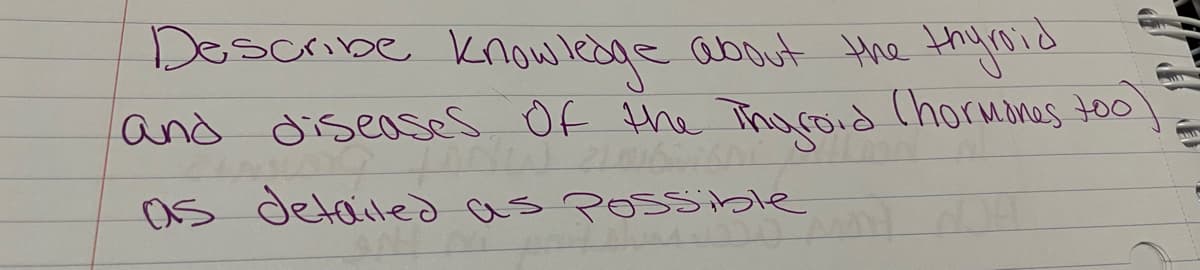 Describe Knowledge about the thyroid
and diseases of the Thyroid (hormones too)
as detailed as Possible